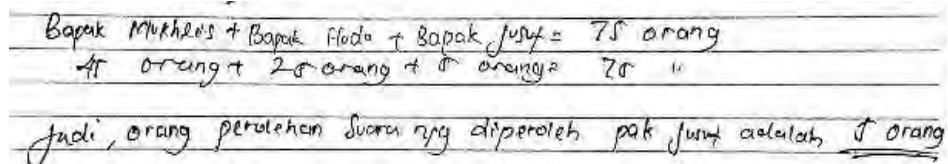 Bapak Mukhlis + Bapak Huda + Bapak Jusuf = 75 orang
45 orang + 25 orang + 5 orang = 75 "
Jadi, orang perolehan suara nya diperoleh pak Jusuf adalah 5 orang